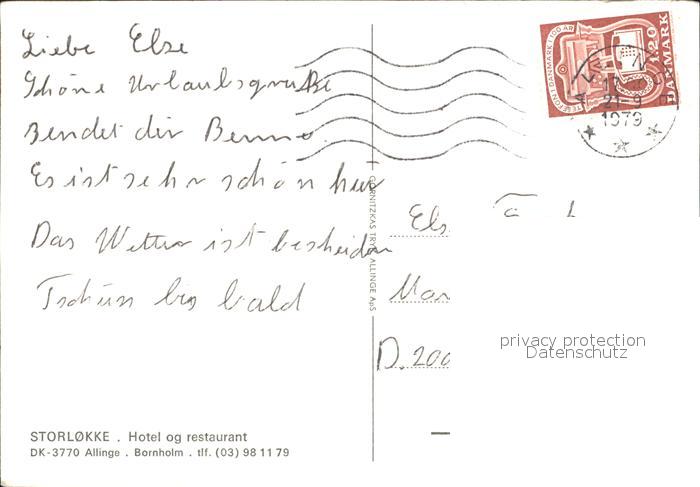 Liebe Else
Schöne Urlaubsgrüße
sendet dir Benno.
Es ist sehr schön hier
Das Wetter ist bescheiden
Tschüss bis bald
STORLØKKE . Hotel og restaurant
DK-3770 Allinge . Bornholm . tlf. (03) 98 11 79
GORNITZKAS TRYK, ALLINGE ApS
TELEFON I DANMARK I 100 ÅR
120
DANMARK
21-9
1979
Els
D. 200
privacy protection
Datenschutz